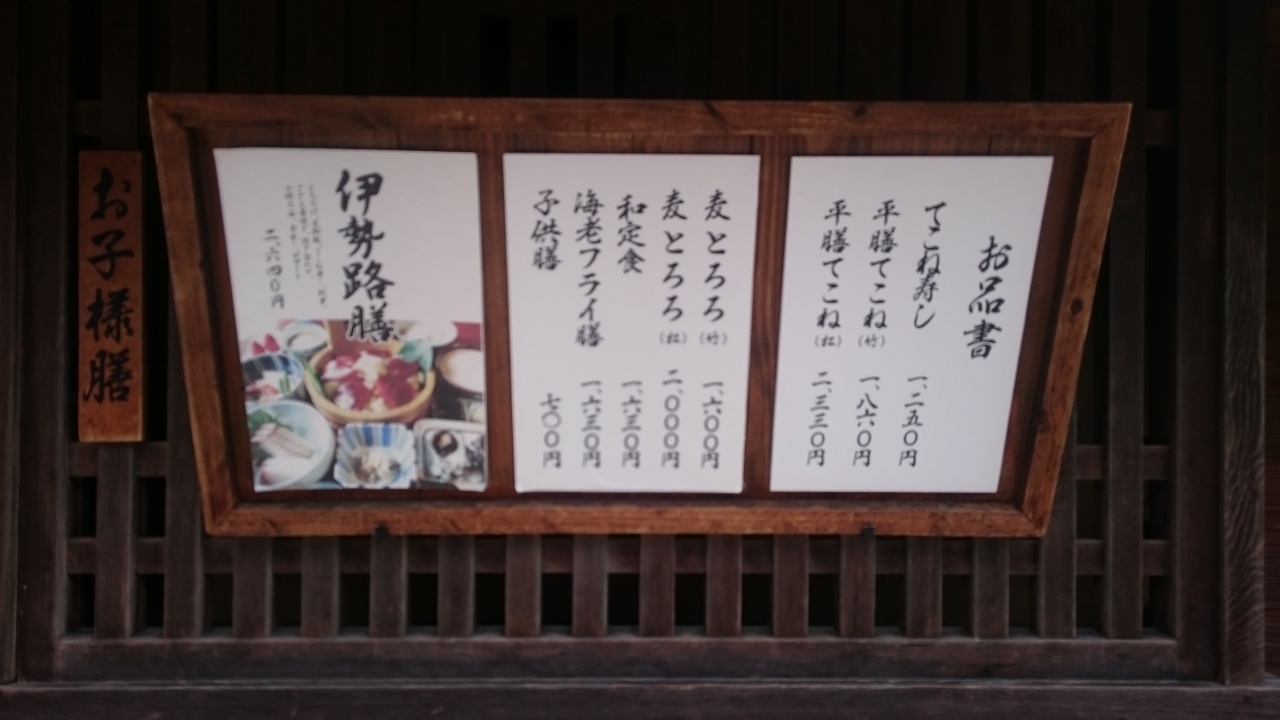 お品書
てこね寿し 一、二五〇円
平膳てこね(竹) 一、八六〇円
平膳てこね(松) 二、三三〇円
麦とろろ(竹) 一、六〇〇円
麦とろろ(松) 二、〇〇〇円
和定食 一、六三〇円
海老フライ膳 一、六三〇円
子供膳 七〇〇円
伊勢路膳
二、六四〇円
お子様膳